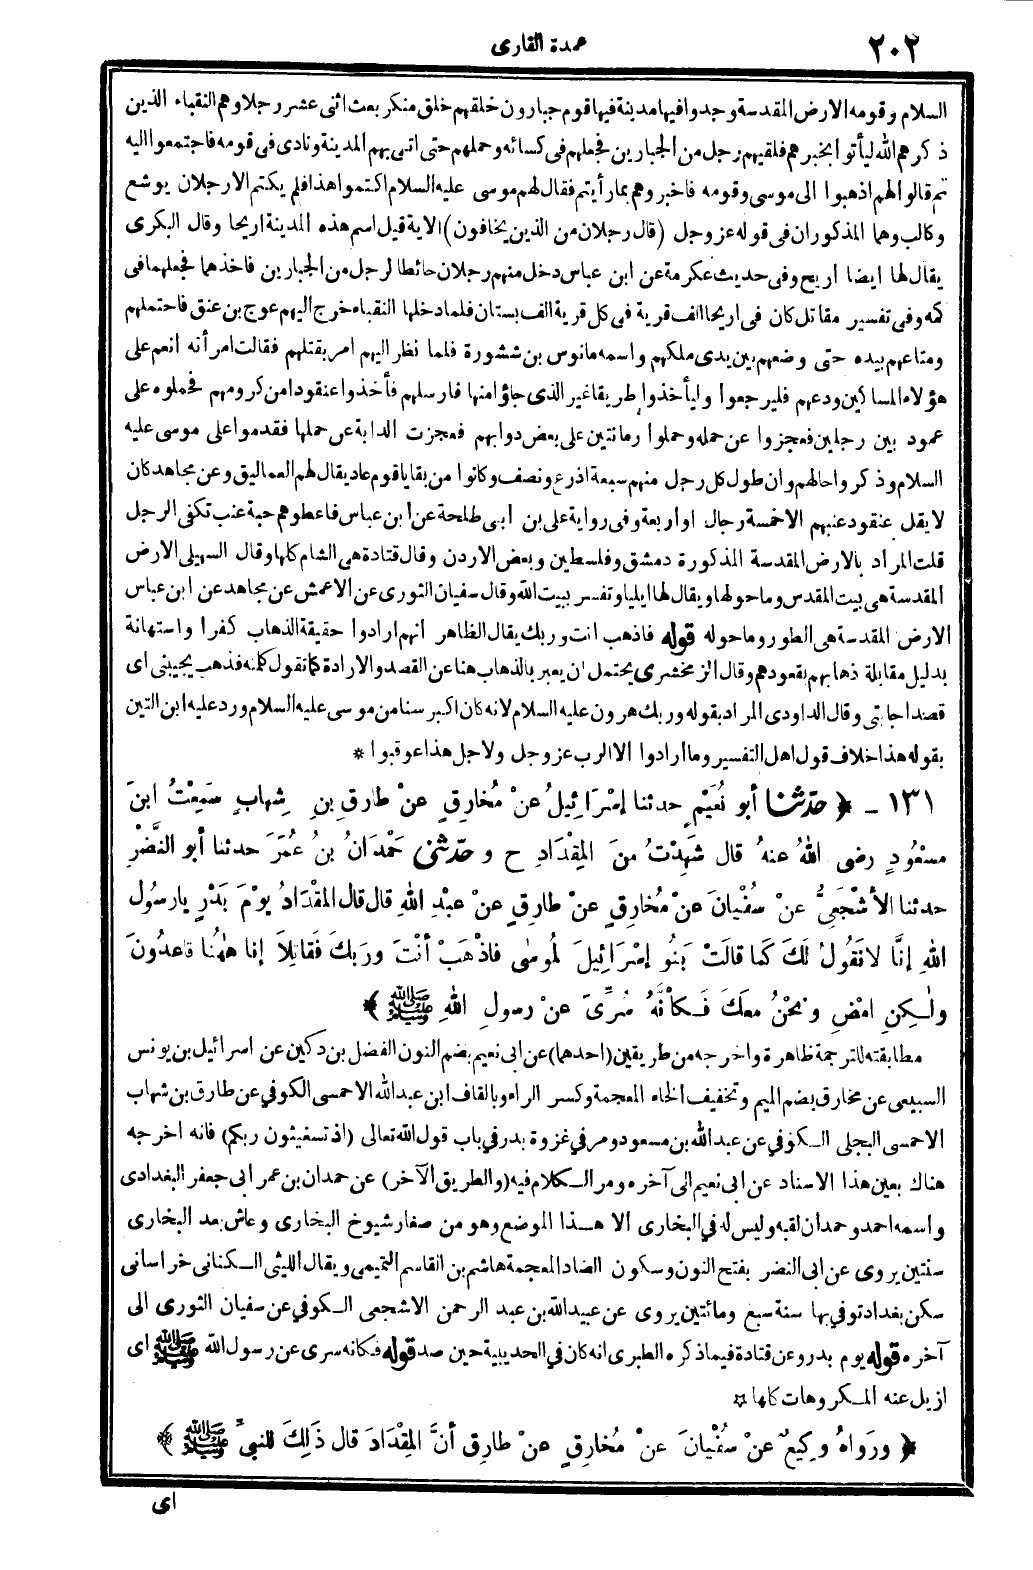 ٢٠٢
عمدة القارى
السلام وقومه الارض المقدسة وجدوا فيها مدينة فيها قوم جبارون خلقهم خلق منكر بعث اثنى عشر رجلا وهم النقباء الذين
ذكرهم الله ليأتوا بخبرهم فلقيهم رجل من الجبارين فجعلهم فى كسائه وحملهم حتى اتى بهم المدينة ونادى فى قومه فاجتمعوا اليه
ثم قالوا لهم اذهبوا الى موسى وقومه فاخبروهم بما رأيتم فقال لهم موسى عليه السلام اكتموا هذا فلم يكتم الا رجلان يوشع
وكالب وهما المذكوران فى قوله عز وجل (قال رجلان من الذين يخافون) الاية قيل اسم هذه المدينة اريحا وقال البكرى
يقال لها ايضا اريح وفى حديث عكرمة عن ابن عباس دخل منهم رجلان حائطا لرجل من الجبارين فاخذهما فجعلهما فى
كمه وفى تفسير مقاتل كان فى اريحا الف قرية فى كل قرية الف بستان فلما دخلها النقباء خرج اليهم عوج بن عنق فاحتملهم
ومتاعهم بيده حتى وضعهم بين يدى ملكهم واسمه مانوس بن ششورة فلما نظر اليهم امر بقتلهم فقالت امرأته انعم على
هؤلاء المساكين ودعهم فليرجعوا وليأخذوا طريقا غير الذى جاؤا منها فارسلهم فأخذوا عنقودا من كرومهم فحملوه على
عمود بين رجلين فعجزوا عن حمله وحملوا رمانتين على بعض دوابهم فعجزت الدابة عن حملها فقدموا على موسى عليه
السلام وذكروا حالهم وان طول كل رجل منهم سبعة اذرع ونصف وكانوا من بقايا قوم عاد يقال لهم العماليق وعن مجاهد كان
لا يقل عنقود عنبهم الا خمسة رجال او اربعة وفى رواية على بن ابى طلحة عن ابن عباس فاعطوهم حبة عنب تكفى الرجل
قلت المراد بالارض المقدسة المذكورة دمشق وفلسطين وبعض الاردن وقال قتادة هى الشام كلها وقال السهيلى الارض
المقدسة هى بيت المقدس وما حولها ويقال لها ايليا وتفسر ببيت الله وقال سفيان الثورى عن الاعمش عن مجاهد عن ابن عباس
الارض المقدسة هى الطور وما حوله قوله فاذهب انت وربك يقال الظاهر انهم ارادوا حقيقة الذهاب كفرا واستهانة
بدليل مقابلة ذهابهم بقعودهم وقال الزمخشرى يحتمل ان يعبر بالذهاب هنا عن القصد والارادة كما تقول كلمته فذهب يجيبنى اى
قصد اجابتى وقال الداودى المراد بقوله وربك هرون عليه السلام لانه كان اكبر سنا من موسى عليه السلام ورد عليه ابن التين
بقوله هذا خلاف قول اهل التفسير وما ارادوا الا الرب عز وجل ولاجل هذا عوقبوا *
١٣١ - ﴿ حدّثنا أبو نُعَيْمٍ حدثنا إسْرَائِيلُ عنْ مُخارِقٍ عنْ طارِقِ بنِ شِهابٍ سَمِعْتُ ابنَ
مسْعُودٍ رضى اللهُ عنهُ قال شَهِدْتُ منَ المِقْدَادِ ح وحدّثنى حَمْدَانُ بنُ عُمَرَ حدثنا أبو النَّضْرِ
حدثنا الأشْجَعِىُّ عنْ سُفْيانَ عنْ مُخارِقٍ عنْ طارِقٍ عنْ عبْدِ اللهِ قال قال المِقْدَادُ يوْمَ بَدْرٍ يا رسُولَ
اللهِ إنَّا لا نَقُولُ لكَ كَما قالَتْ بَنُو إسْرَائِيلَ لمُوسٰى فاذْهَبْ أنْتَ ورَبكَ فَقاتِلاَ إنا هٰهُنا قاعدُونَ
ولٰكِنِ امْضِ ونحْنُ معكَ فَكأنَّهُ سُرِّىَ عنْ رسولِ اللهِ ﷺ ﴾
مطابقته للترجمة ظاهرة واخرجه من طريقين (احدهما) عن ابى نعيم بضم النون الفضل بن دكين عن اسرائيل بن يونس
السبيعى عن مخارق بضم الميم وتخفيف الخاء المعجمة وكسر الراء وبالقاف ابن عبد الله الاحمسى الكوفي عن طارق بن شهاب
الاحمسى البجلى الكوفي عن عبد الله بن مسعود ومر في غزوة بدر في باب قول الله تعالى (اذ تستغيثون ربكم) فانه اخرجه
هناك بعين هذا الاسناد عن ابى نعيم الى آخره ومر الكلام فيه (والطريق الآخر) عن حمدان بن عمر ابى جعفر البغدادى
واسمه احمد وحمدان لقبه وليس له في البخارى الا هذا الموضع وهو من صغار شيوخ البخارى وعاش بعد البخارى
سنتين يروى عن ابى النضر بفتح النون وسكون الضاد المعجمة هاشم بن القاسم التميمى ويقال الليثى الكنانى خراسانى
سكن بغداد توفي بها سنة سبع ومائتين يروى عن عبيد الله بن عبد الرحمن الاشجعى الكوفي عن سفيان الثورى الى
آخره قوله يوم بدر وعن قتادة فيما ذكره الطبرى انه كان في الحديبية حين صد قوله فكانه سرى عن رسول الله ﷺ اى
ازيل عنه المكروهات كلها ☆
﴿ ورَواهُ وكِيعٌ عنْ سُفْيانَ عنْ مُخارِقٍ عنْ طارِقٍ أنَّ المِقْدَادَ قال ذٰلِكَ للنبىِّ ﷺ ﴾
اى